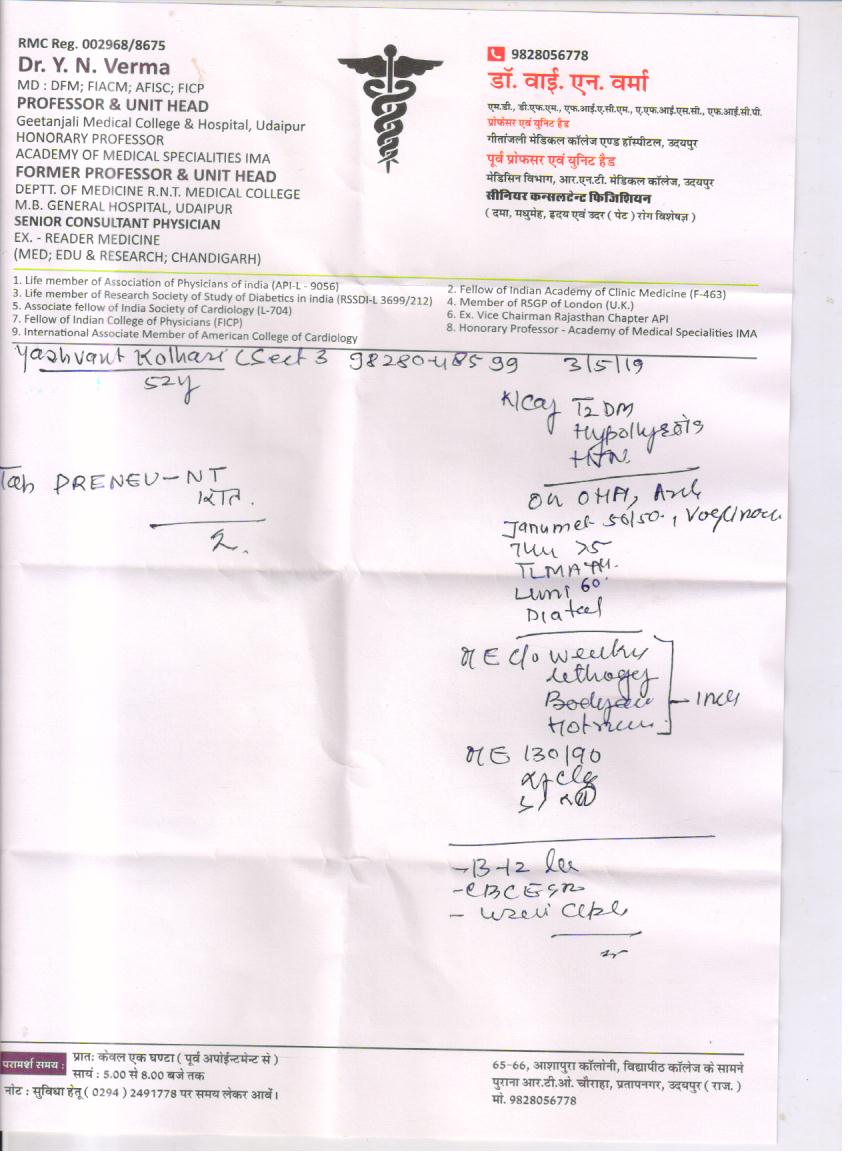 RMC Reg. 002968/8675
Dr. Y. N. Verma
MD : DFM; FIACM; AFISC; FICP
PROFESSOR & UNIT HEAD
Geetanjali Medical College & Hospital, Udaipur
HONORARY PROFESSOR
ACADEMY OF MEDICAL SPECIALITIES IMA
FORMER PROFESSOR & UNIT HEAD
DEPTT. OF MEDICINE R.N.T. MEDICAL COLLEGE
M.B. GENERAL HOSPITAL, UDAIPUR
SENIOR CONSULTANT PHYSICIAN
EX. - READER MEDICINE
(MED; EDU & RESEARCH; CHANDIGARH)
9828056778
डॉ. वाई. एन. वर्मा
एम.डी., डी.एफ.एम., एफ.आई.ए.सी.एम., ए.एफ.आई.एस.सी., एफ.आई.सी.पी.
प्रोफेसर एवं युनिट हैड
गीतांजली मेडिकल कॉलेज एण्ड हॉस्पीटल, उदयपुर
पूर्व प्रोफसर एवं युनिट हैड
मेडिसिन विभाग, आर.एन.टी. मेडिकल कॉलेज, उदयपुर
सीनियर कन्सलटेन्ट फिजिशियन
( दमा, मधुमेह, हृदय एवं उदर ( पेट ) रोग विशेषज्ञ )
1. Life member of Association of Physicians of india (API-L - 9056)
2. Fellow of Indian Academy of Clinic Medicine (F-463)
3. Life member of Research Society of Study of Diabetics in india (RSSDI-L 3699/212)
4. Member of RSGP of London (U.K.)
5. Associate fellow of India Society of Cardiology (L-704)
6. Ex. Vice Chairman Rajasthan Chapter API
7. Fellow of Indian College of Physicians (FICP)
8. Honorary Professor - Academy of Medical Specialities IMA
9. International Associate Member of American College of Cardiology
Yashvant Kothari (Sect 3 98280-48599 3/5/19
52y
K/C/O T2DM
HTN
Tab PRENEU-NT
रात
2.
On OHA,
Janumet 50/50.,
75
60
c/o
Lethargy
130/90
- B-12
- CBC ESR
परामर्श समय :
प्रातः केवल एक घण्टा ( पूर्व अपोईन्टमेन्ट से )
सायं : 5.00 से 8.00 बजे तक
नोट : सुविधा हेतू ( 0294 ) 2491778 पर समय लेकर आवें।
65-66, आशापुरा कॉलोनी, विद्यापीठ कॉलेज के सामने
पुराना आर.टी.ओ. चौराहा, प्रतापनगर, उदयपुर ( राज. )
मो. 9828056778